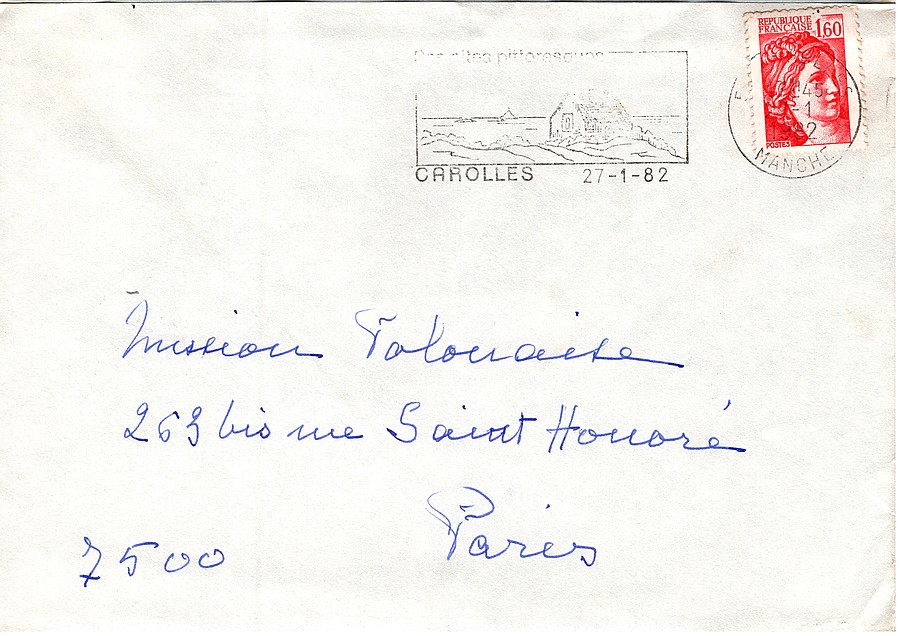 REPUBLIQUE
FRANÇAISE 1,60
POSTES
Des sites pittoresques
CAROLLES 27-1-82
1982
MANCHE
Mission Polonaise
263 bis rue Saint Honoré
7500 Paris